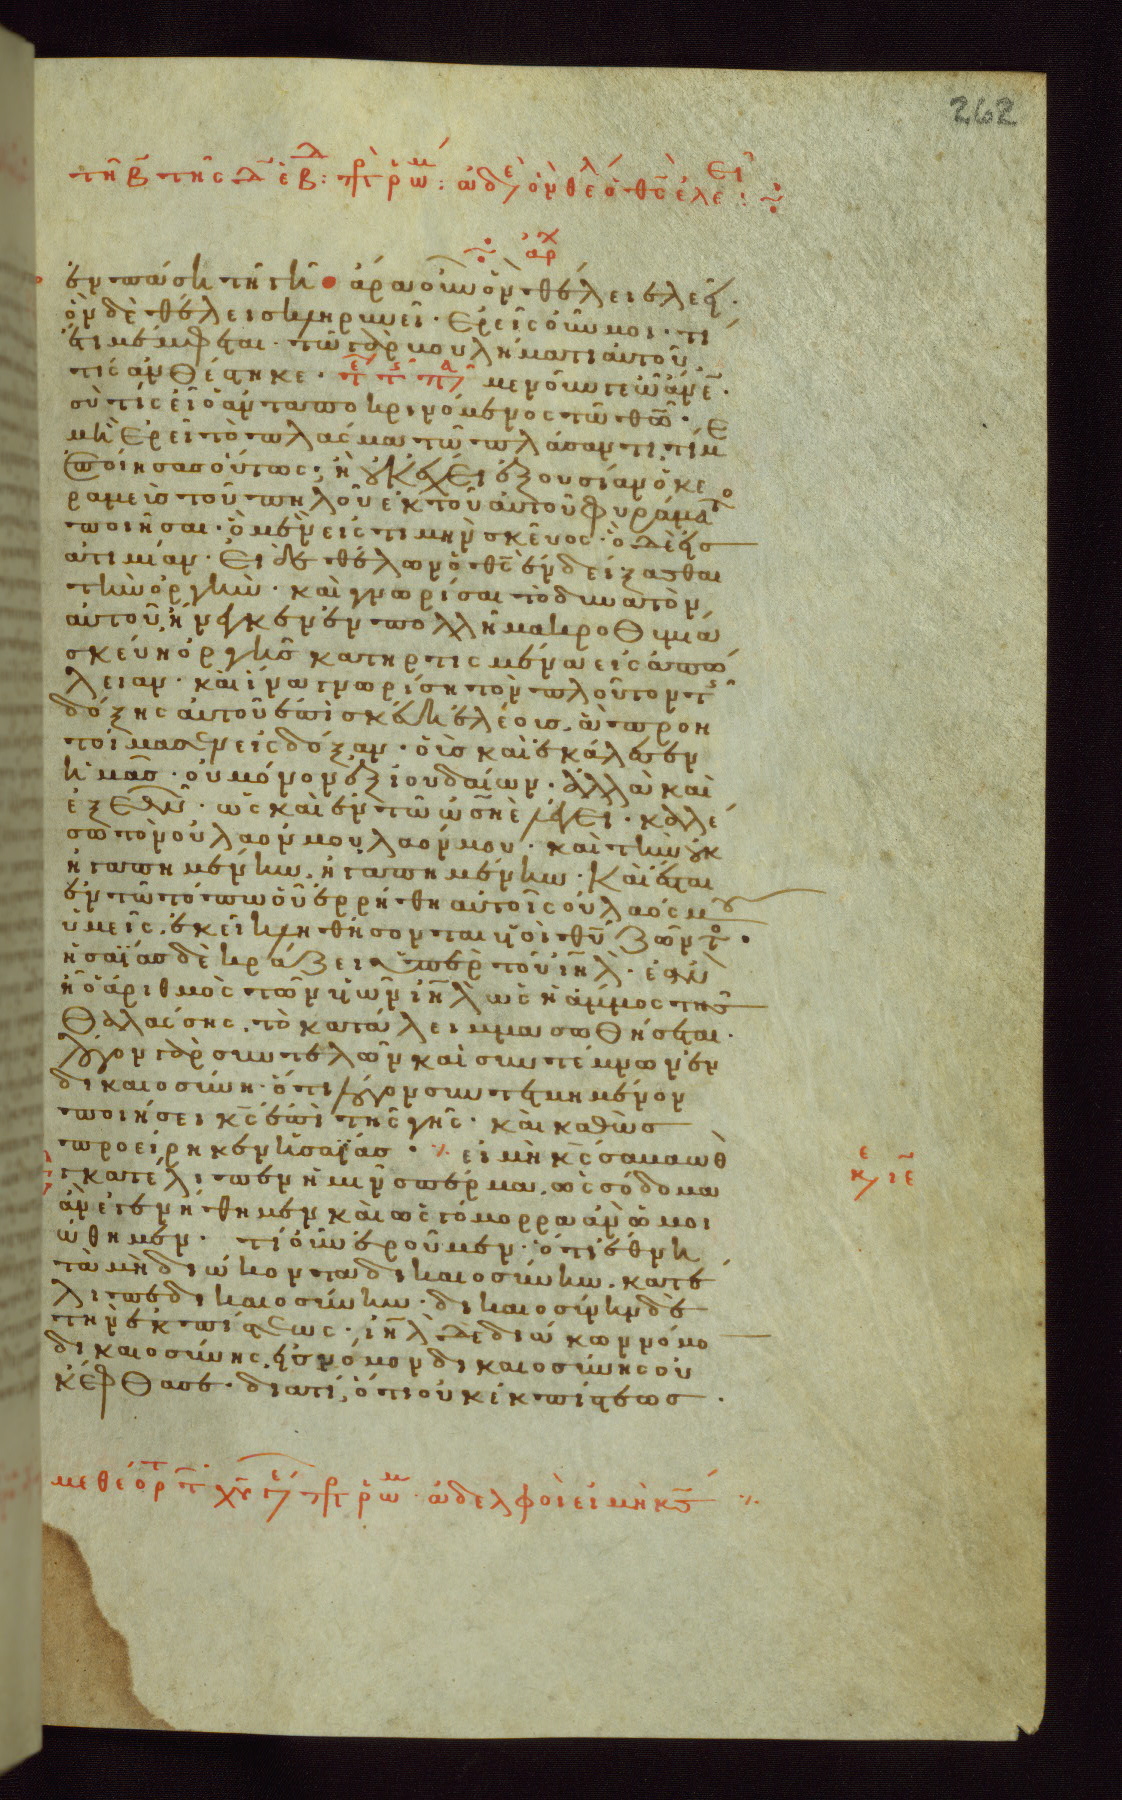 262
τῇ β τῆς δ ἑβδ: πρ ῥωμ: ἀδε ὃν θέλ ὁ θς ἐλεεῖ:
ἀρχ
ἐν πάσῃ τῇ γῇ ἄρα οὖν ὃν θέλει ἐλεεῖ·
ὃν δὲ θέλει σκληρύνει· Ἐρεῖς οὖν μοι· τί
ἔτι μέμφεται· τῷ γὰρ βουλήματι αὐτοῦ
τίς ἀνθέστηκε· μενοῦνγε ὦ ἄνε·
σὺ τίς εἶ ὁ ἀνταποκρινόμενος τῷ θῶ·
μὴ ἐρεῖ τὸ πλάσμα τῷ πλάσαντι τί μ
ἐποίησας οὕτως· ἢ οὐκ ἔχει ἐξουσίαν ὁ κε
ραμεὺς τοῦ πηλοῦ ἐκ τοῦ αὐτοῦ φυράματο
ποιῆσαι· ὃ μὲν εἰς τιμὴν σκεῦος· ὃ δὲ εἰς
ἀτιμίαν· Εἰ δὲ θέλων ὁ θς ἐνδείξασθαι
τὴν ὀργὴν· καὶ γνωρίσαι τὸ δυνατὸν
αὐτοῦ, ἤνεγκεν ἐν πολλῇ μακροθυμία
σκεύη ὀργῆς κατηρτισμένα εἰς ἀπώ
λειαν· καὶ ἵνα γνωρίσῃ τὸν πλοῦτον τῆς
δόξης αὐτοῦ ἐπὶ σκεύη ἐλέους, ἃ προη
τοίμασεν εἰς δόξαν· οὓς καὶ ἐκάλεσεν
ἡμᾶς· οὐ μόνον ἐξ ἰουδαίων· ἀλλὰ καὶ
ἐξ ἐθνῶν· ὡς καὶ ἐν τῷ ὡσηὲ λέγει· καλέ
σω τὸν οὐ λαόν μου, λαόν μου· καὶ τὴν οὐκ
ἠγαπημένην, ἠγαπημένην· Καὶ ἔσται
ἐν τῷ τόπω οὗ ἐρρήθη αὐτοῖς οὐ λαός μου
ὑμεῖς, ἐκεῖ κληθήσονται υἱοὶ θυ ζῶντο·
ἡσαΐας δὲ κράζει ὑπὲρ τοῦ ιηλ· ἐὰν
ἦ ὁ ἀριθμὸς τῶν υἱῶν ιηλ ὡς ἡ ἄμμος τῆς
θαλάσσης, τὸ κατάλειμμα σωθήσεται·
λόγον γὰρ συντελῶν καὶ συντέμνων ἐν
δικαιοσύνη· ὅτι λόγον συντετμημένον
ποιήσει κς ἐπὶ τῆς γῆς· καὶ καθὼς
προείρηκεν ἡσαΐας· εἰ μὴ κς σαβαὼθ
ἐγκατέλιπεν ἡμῖν σπέρμα, ὡς σόδομα
ἂν ἐγενήθημεν καὶ ὡς γόμορρα ἂν ὡμοι
ώθημεν· τί οὖν ἐροῦμεν· ὅτι ἔθνη
τὰ μὴ διώκοντα δικαιοσύνην, κατέ
λαβε δικαιοσύνην· δικαιοσύνην δὲ
τὴν ἐκ πίστεως· ιηλ δὲ διώκων νόμο
δικαιοσύνης, εἰς νόμον δικαιοσύνης οὐ
κ ἔφθασε· διατί, ὅτι οὐκ ἐκ πίστεως·
κε ιε
μεθέορτ χυ γε πρ ῥωμ· ἀδελφοὶ εἰ μὴ κς